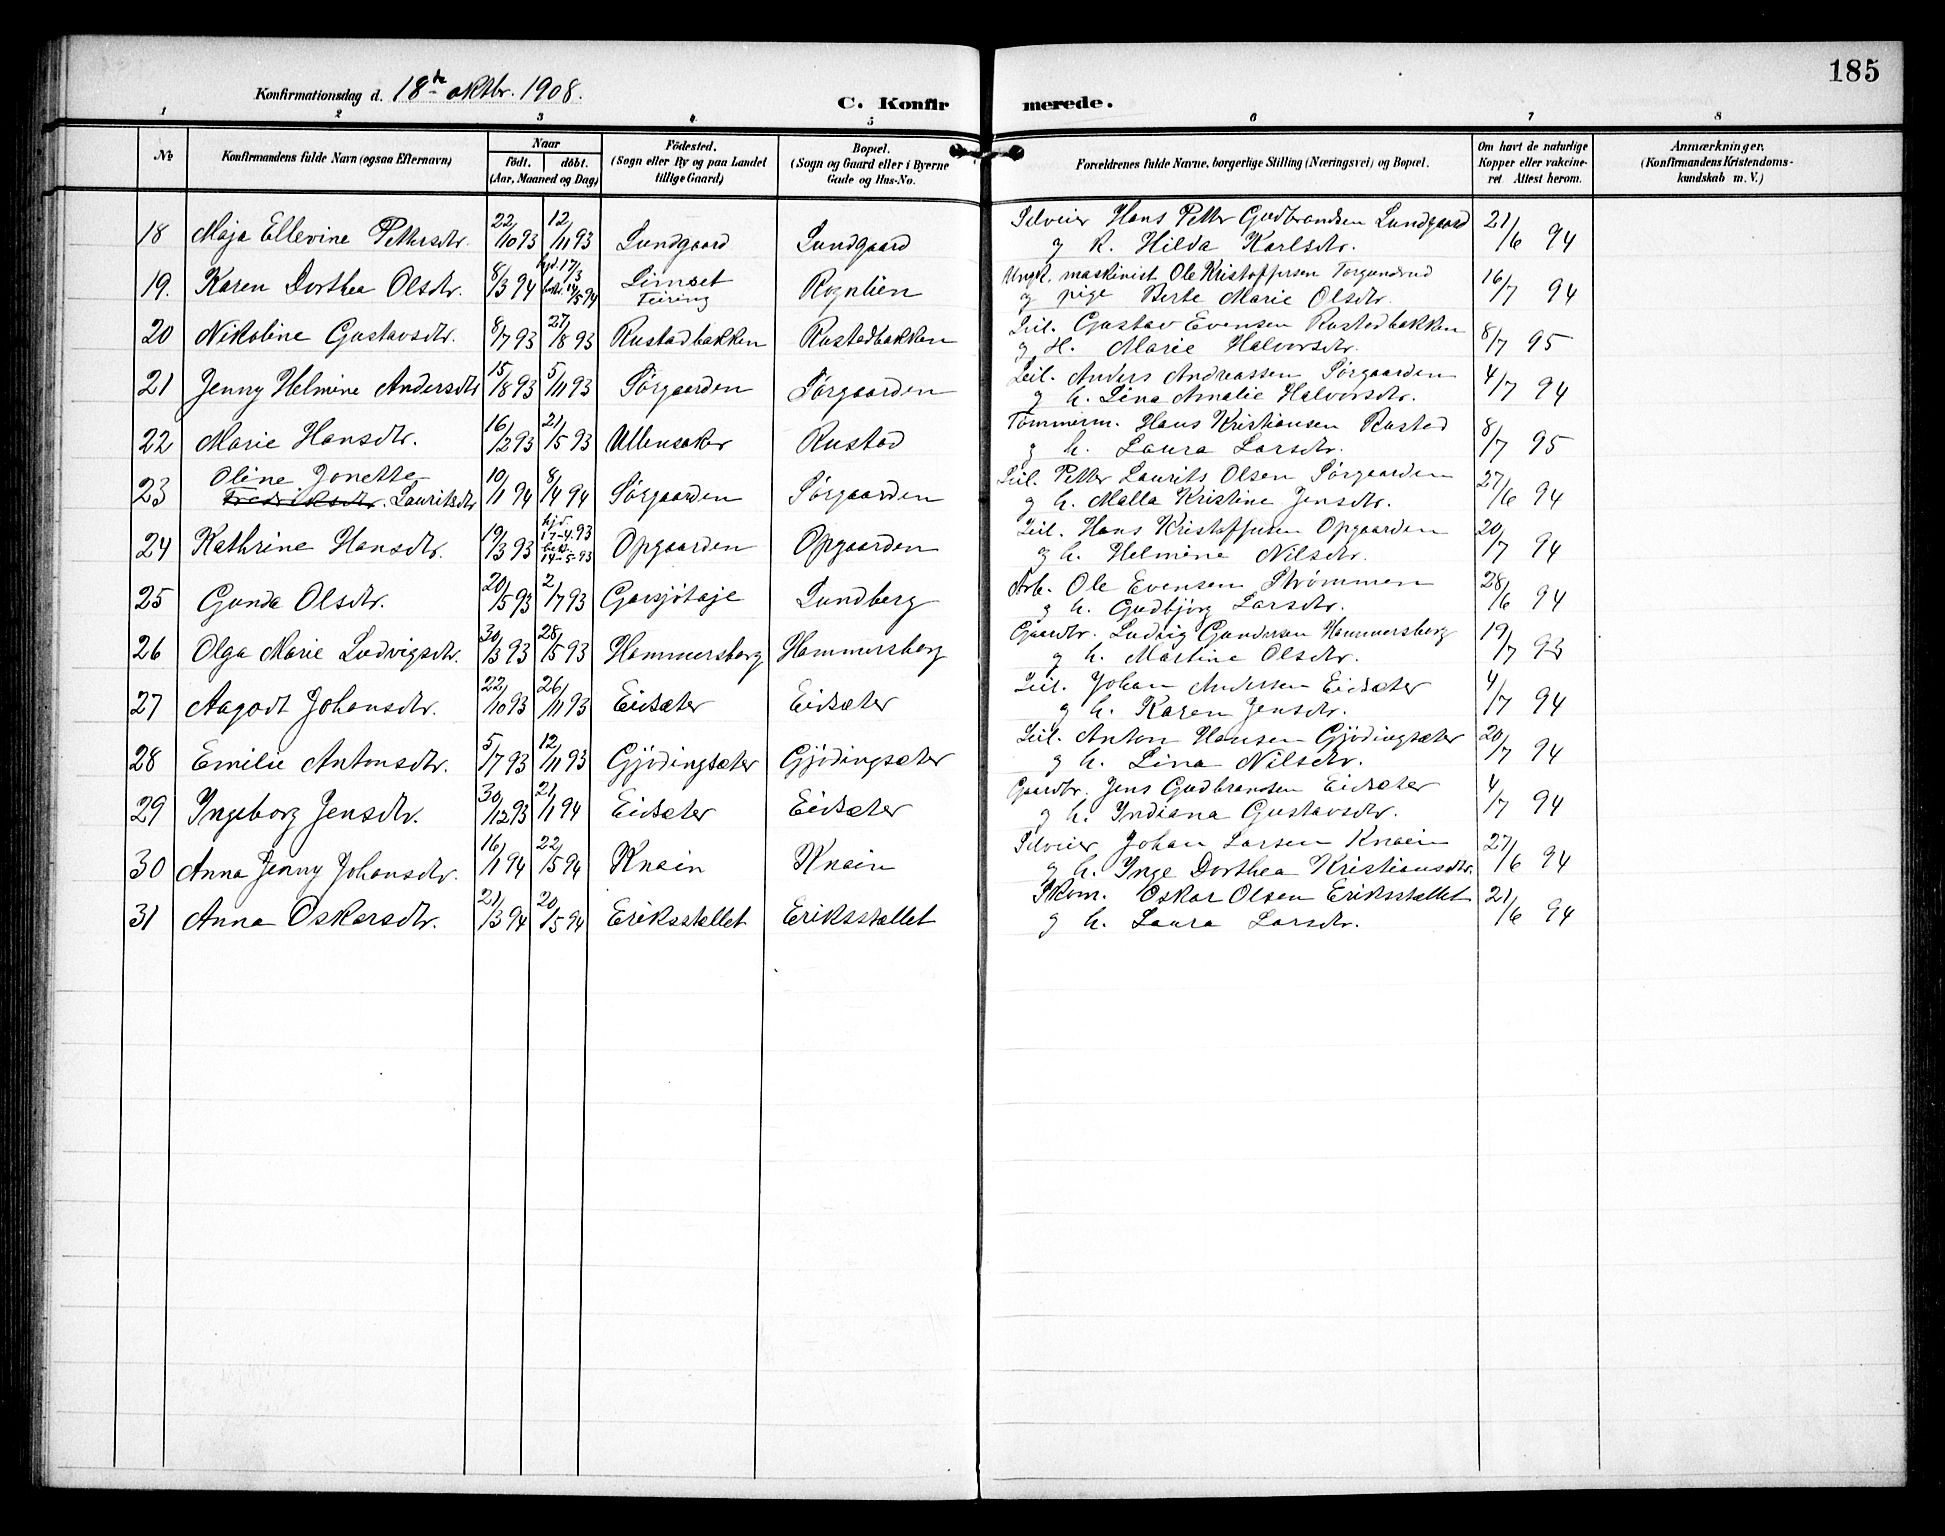 185
Konfirmationsdag d. 18de oktbr. 1908.
C. Konfirmerede.
1 2 3 4 5 6 7 8
No
Konfirmandens fulde Navn (ogsaa Efternavn)
Naar
født. døbt.
(Aar, Maaned og Dag)
Fødested.
(Sogn eller By og paa Landet
tillige Gaard)
Bopæl.
(Sogn og Gaard eller i Byerne
Gade og Hus-No.
Forældrenes fulde Navne, borgerlige Stilling (Næringsvei) og Bopæl.
Om havt de naturlige
Kopper eller vakcine-
ret Attest herom.
Anmærkninger.
(Konfirmandens Kristendoms-
kundskab m. V.)
18 Maja Ellevine Pettersdtr. 22/10 93 12/11 93 Lundgaard Lundgaard Selveier Hans Petter Gudbrandsen Lundgaard 21/6 94
og h. Hilda Karlsdtr.
19. Karen Dorthea Olsdtr. 8/3 94 hjd. 17/3 bekr. 14/5 94 Limset Feiring Rognlien Ungk. maskinist Ole Kristoffersen Torgunrud 16/7 94
og pige Berte Marie Olsdtr.
20 Nikoline Gustavsdtr. 8/7 93 27/8 93 Rustadbakken Rustadbakken Leil. Gustav Evensen Rustadbakken 8/7 95
og H. Marie Halvorsdtr.
21 Jenny Helmine Andersdtr 15/8 93 5/11 93 Sørgaarden Sørgaarden Leil. Anders Andreassen Sørgaarden 4/7 94
og h. Lina Amalie Halvorsdtr.
22 Marie Hansdtr. 16/2 93 21/5 93 Ullensaker Rustad Tømmerm. Hans Kristiansen Rustad 8/7 95
og h. Laura Larsdtr.
23 Oline Jonette
Fredriksdtr. Lauritsdtr 10/1 94 8/4 94 Sørgaarden Sørgaarden Leil. Petter Laurits Olsen Sørgaarden 27/6 94
og h. Malla Kristine Jensdtr.
24 Kathrine Hansdtr. 19/3 93 hjd. 17-4.93 bekr. 14-5-93 Opgaarden Opgaarden Leil. Hans Kristoffersen Opgaarden 20/7 94
og h. Helmine Nilsdtr.
25 Gunda Olsdtr. 20/5 93 2/7 93 Garsjøtaje Lundberg Arb. Ole Evensen Strømmen 28/6 94
og h. Gudbjørg Larsdtr.
26 Olga Marie Ludvigsdtr. 30/3 93 28/5 93 Hammersberg Hammersberg Gaardbr. Ludvig Gundersen Hammersberg 19/7 93
og h. Martine Olsdtr.
27 Aagodt Johansdtr. 22/10 93 26/11 93 Eidsæter Eidsæter Leil. Johan Andersen Eidsæter 4/7 94
og h. Karen Jensdtr.
28 Emilie Antonsdtr. 5/7 93 12/11 93 Gjødingsæter Gjødingsæter Leil. Anton Hansen Gjødingsæter 20/7 94
og h. Lina Nilsdtr.
29 Ingeborg Jensdtr. 30/12 93 21/1 94 Eidsæter Eidsæter Gaardbr. Jens Gudbrandsen Eidsæter 4/7 94
og h. Indiana Gustavsdtr.
30 Anna Jenny Johansdtr. 16/1 94 22/5 94 Knain Knain Selveier Johan Larsen Knain 27/6 94
og h. Inge Dorthea Kristiansdtr.
31 Anna Oskarsdtr. 21/3 94 20/5 94 Eriksstallet Eriksstallet Skom. Oskar Olsen Eriksstallet 21/6 94
og h. Laura Larsdtr.